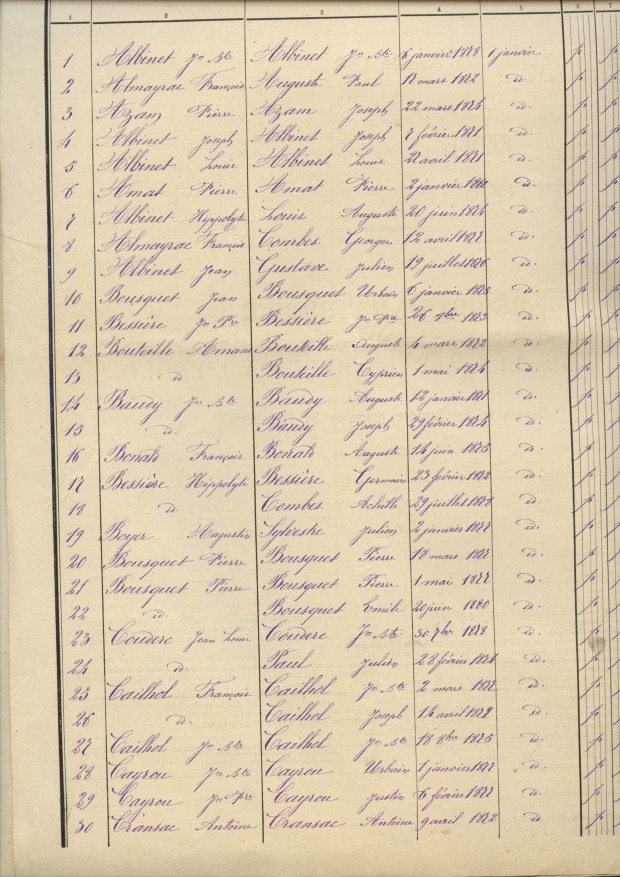 1 2 3 4 5 6 7
1 Albinet Jn Bte Albinet Jn Bte 6 janvier 1878 1 janvier p p
2 Almayrac François Auguste Paul mars 1872 id. p p
3 Azam Pierre Azam Joseph 22 mars 1874 id. p p
4 Albinet Joseph Albinet Joseph 7 février 1871 id. p p
5 Albinet Louis Albinet Louis avril 1871 id. p p
6 Amat Pierre Amat Pierre 2 janvier id. p p
7 Albinet Hippolyte Louis Auguste 20 juin 1874 id. p p
8 Almayrac François Combes Georges 12 avril 1877 id. p p
9 Albinet Jean Gustave Julien 19 juillet 1876 id. p p
10 Bousquet Jean Bousquet Urbain 6 janvier 1875 id. p p
11 Bessière Jn Pre Bessière Jn Pre 26 9bre id. p p
12 Bouteille Amans Bouteille Auguste 4 mars 1872 id. p p
13 id. Bouteille Cyprien 1 mai 1874 id. p p
14 Baudy Jn Bte Baudy Auguste 12 janvier 1871 id. p p
15 id. Baudy Joseph 29 février 1874 id. p p
16 Bonald François Bonald Auguste 14 juin 1875 id. p p
17 Bessière Hippolyte Bessière Germain 23 février 1872 id. p p
18 id. Combes Achille 29 juillet 1878 id. p p
19 Boyer Augustin Sylvestre Julien 2 janvier 1877 id. p p
20 Bousquet Pierre Bousquet Pierre 18 mars 1877 id. p p
21 Bousquet Pierre Bousquet Pierre 1 mai 1877 id. p p
22 id. Bousquet Emile 20 juin 1880 id. p p
23 Couderc Jean Louis Couderc Jn Bte 30 7bre 1878 id. p p
24 id. Paul Julien 28 février 1876 id. p p
25 Cailhol François Cailhol Jn Bte 2 mars 1877 id. p p
26 id. Cailhol Joseph 14 avril 1879 id. p p
27 Cailhol Jn Bte Cailhol Jn Bte 18 8bre 1875 id. p p
28 Cayrou Jn Bte Cayrou Urbain 1 janvier 1877 id. p p
29 Cayrou Jn Pre Cayrou Justin 6 février 1877 id. p p
30 Cransac Antoine Cransac Antoine 9 avril 1872 id. p p